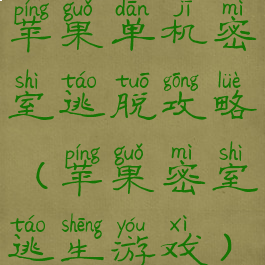 píng guǒ dān jī mì
苹果单机密
shì táo tuō gōng lüè
室逃脱攻略
píng guǒ mì shì
(苹果密室
táo shēng yóu xì
逃生游戏)